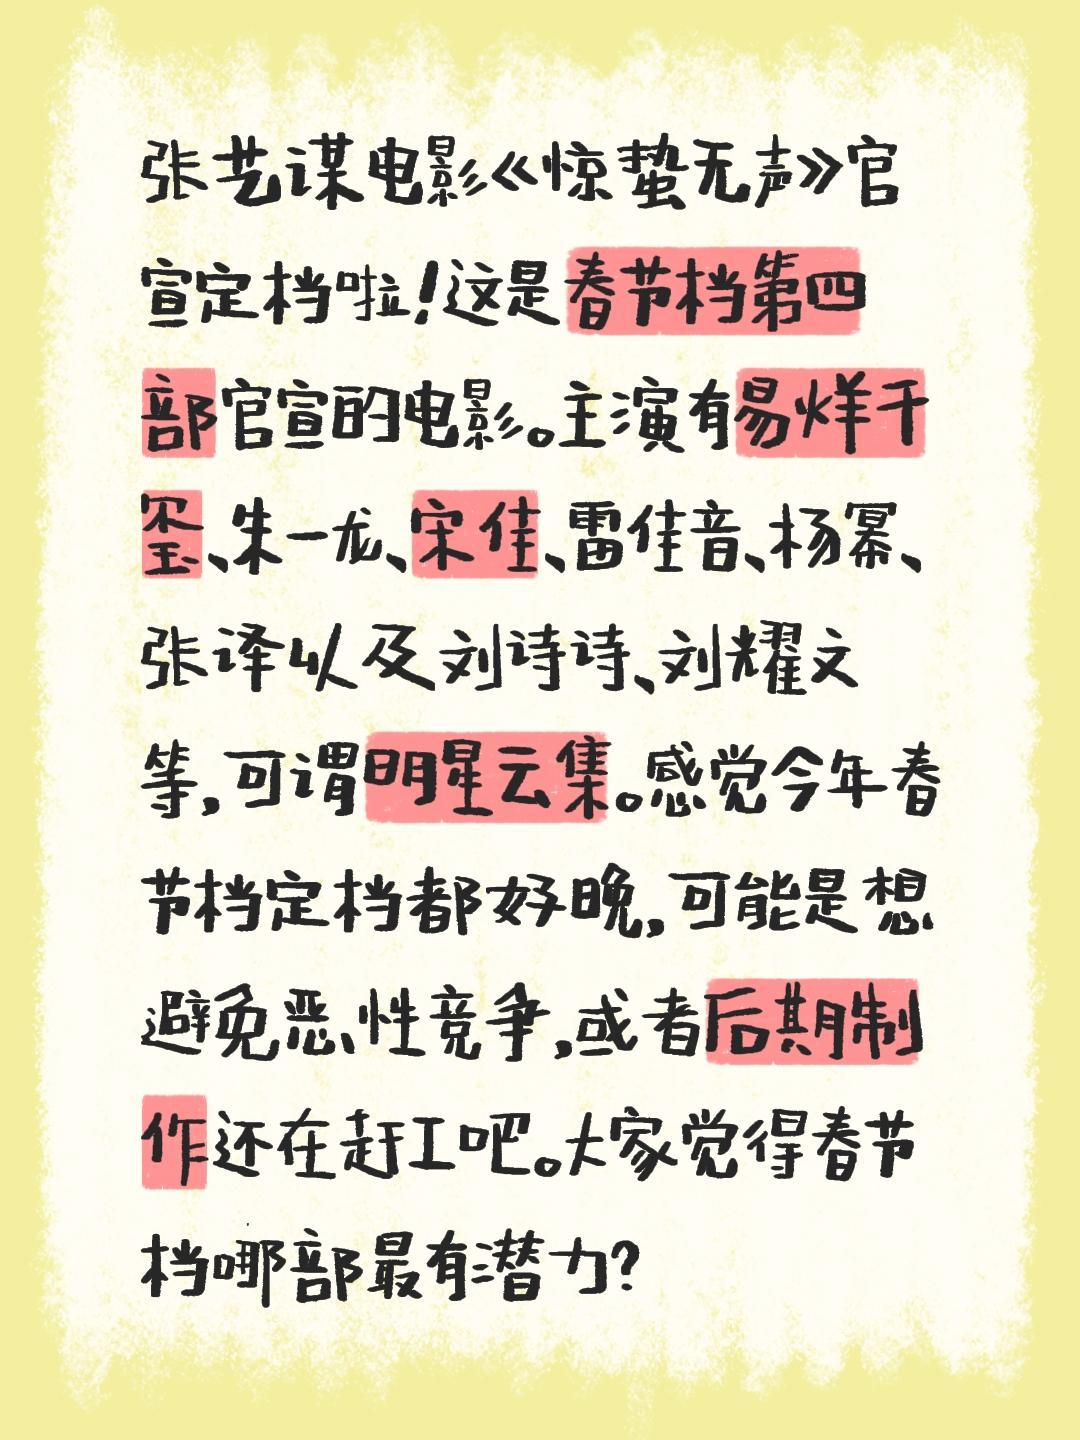 张艺谋电影《惊蛰无声》官
宣定档啦！这是春节档第四
部官宣的电影。主演有易烊千
玺、朱一龙、宋佳、雷佳音、杨幂、
张译以及刘诗诗、刘耀文
等，可谓明星云集。感觉今年春
节档定档都好晚，可能是想
避免恶性竞争，或者后期制
作还在赶工吧。大家觉得春节
档哪部最有潜力？